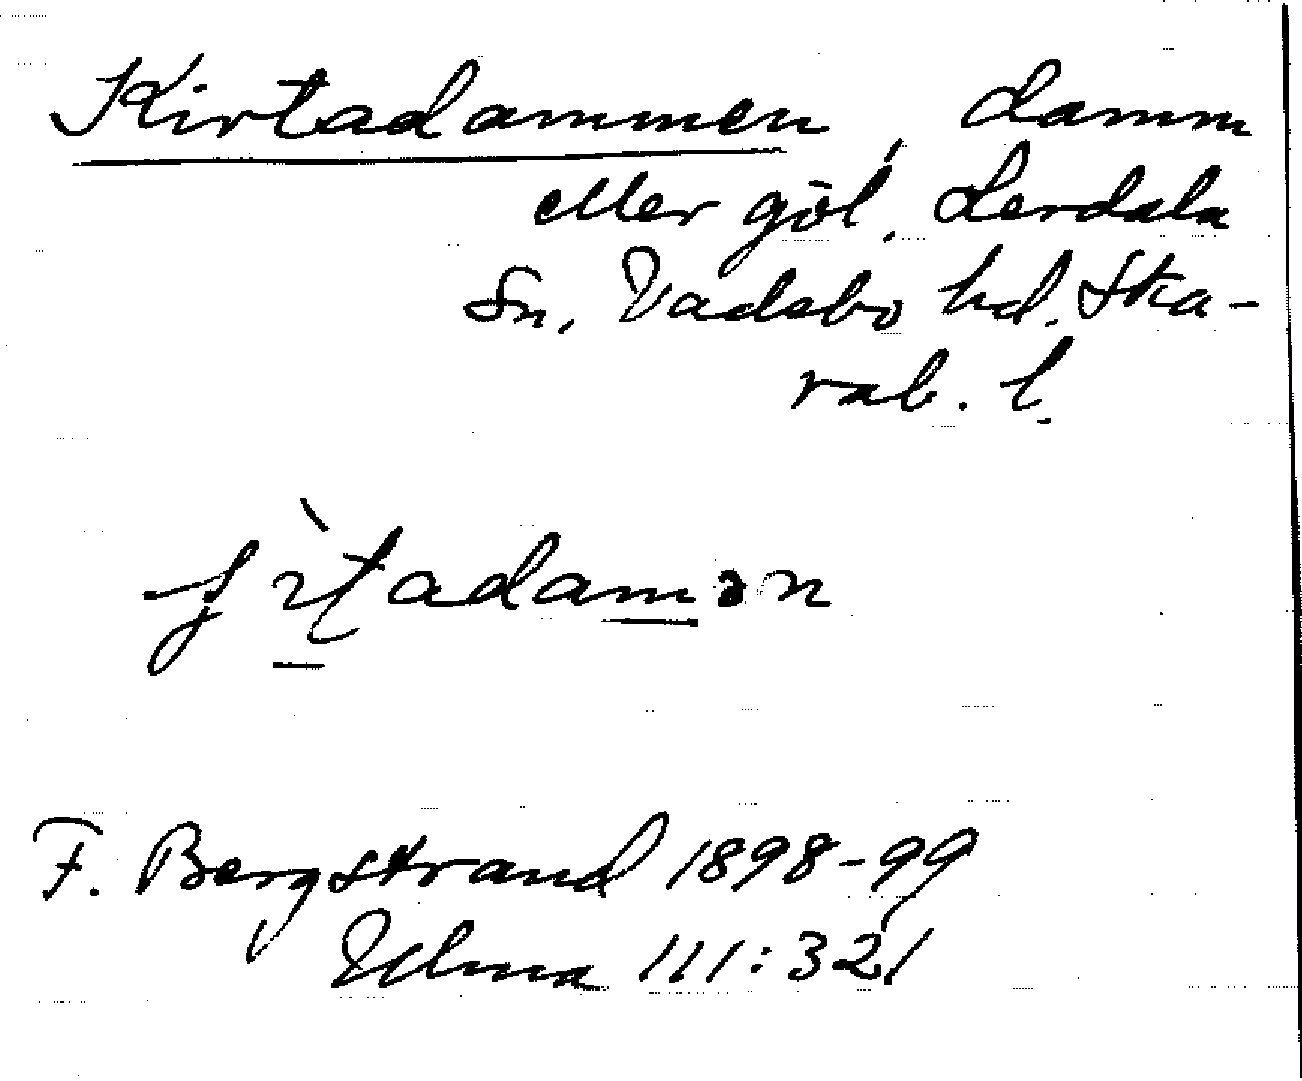 Kirtadammen, damm
eller göl. Lerdala
Sn. Vadsbo hd. Ska-
rab. l.
F. Bergstrand 1898-99
Ulma 111:321